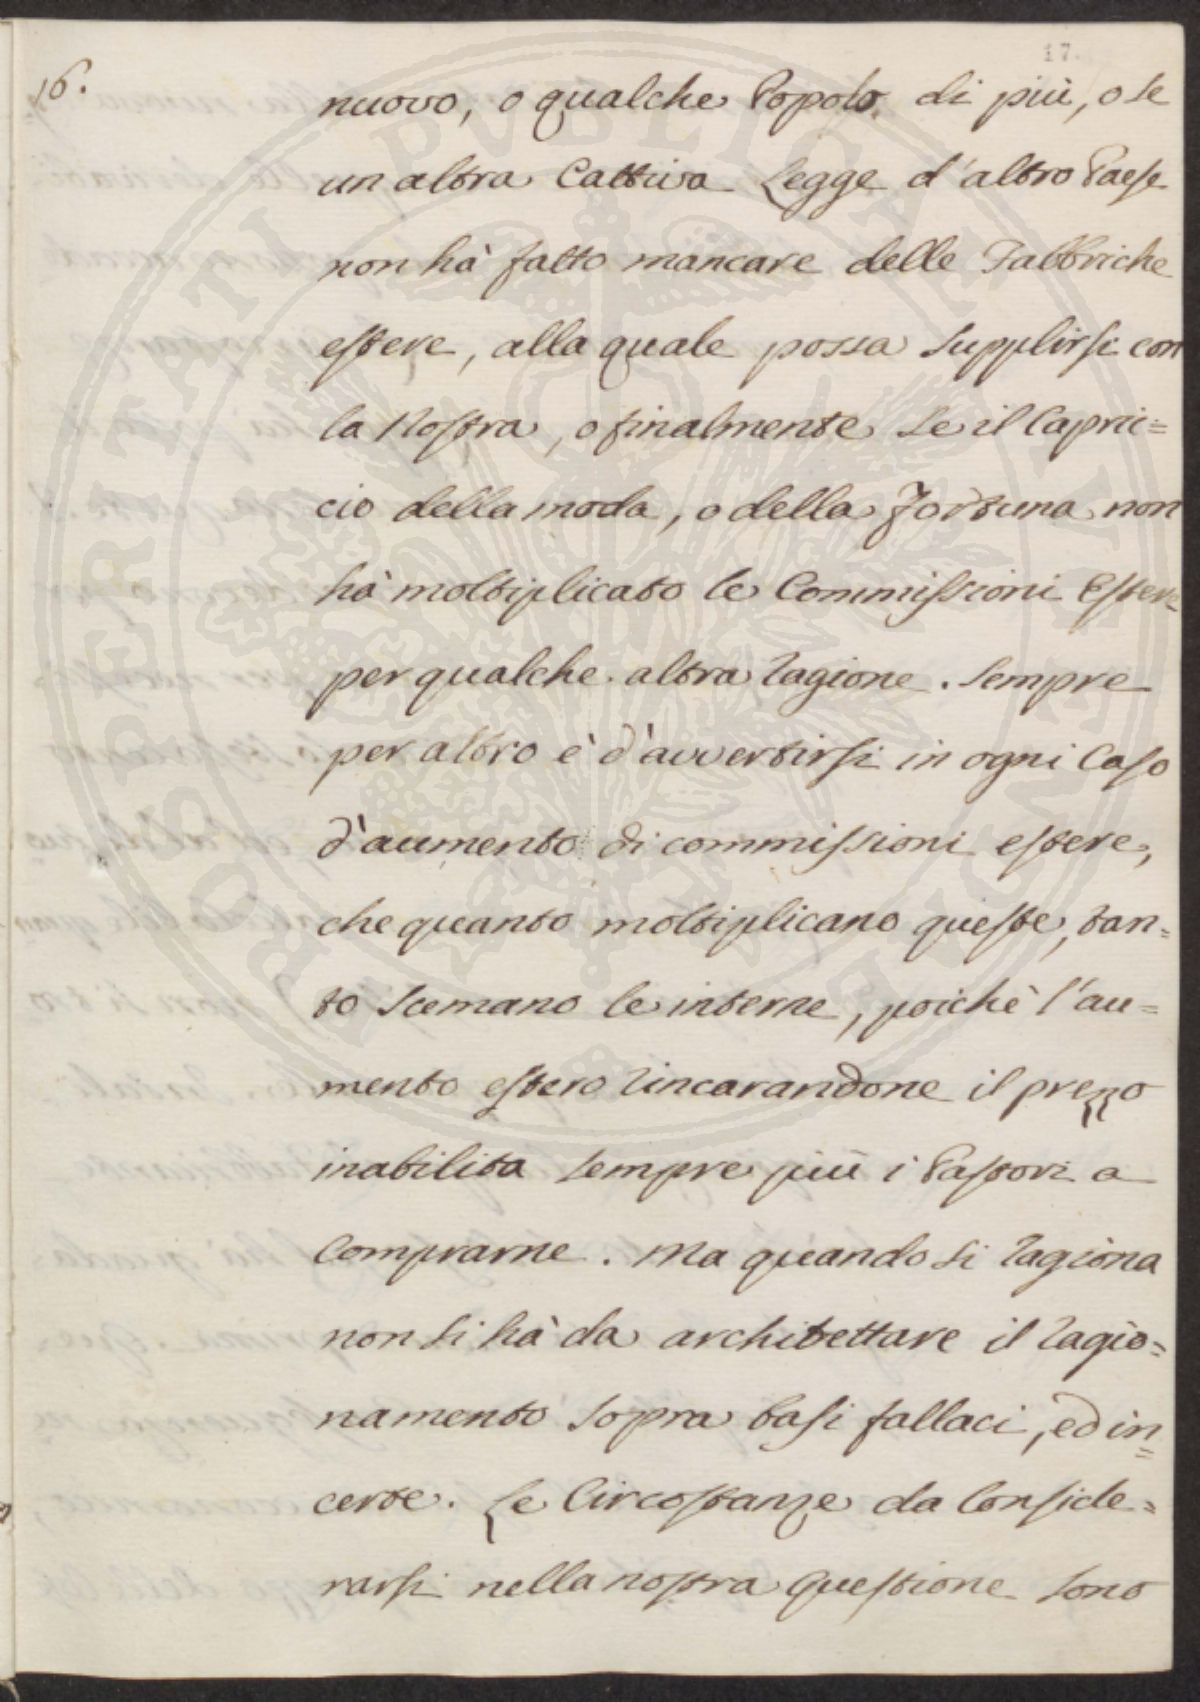 17.
16.
nuovo, o qualche Popolo di più, o se
un altra Cattiva Legge d'altro Paese
non hà fatto mancare delle Fabbriche
estere, alla quale possa supplirsi con
la Nostra, o finalmente se il Capric=
cio della moda, o della Fortuna non
hà moltiplicato le Commissioni Estere
per qualche altra ragione. Sempre
per altro è d'avvertirsi in ogni Caso
d'aumento di commissioni estere,
che quanto moltiplicano queste, tan=
to scemano le interne, poichè l'au=
mento estero rincarandone il prezzo
inabilita sempre più i Pastori a
Comprarne. Ma quando si ragiona
non si hà da architettare il ragio=
namento sopra basi fallaci, ed in=
certe. Le Circostanze da Conside=
rarsi nella nostra questione sono
PROSPERITATI PVBLICAE